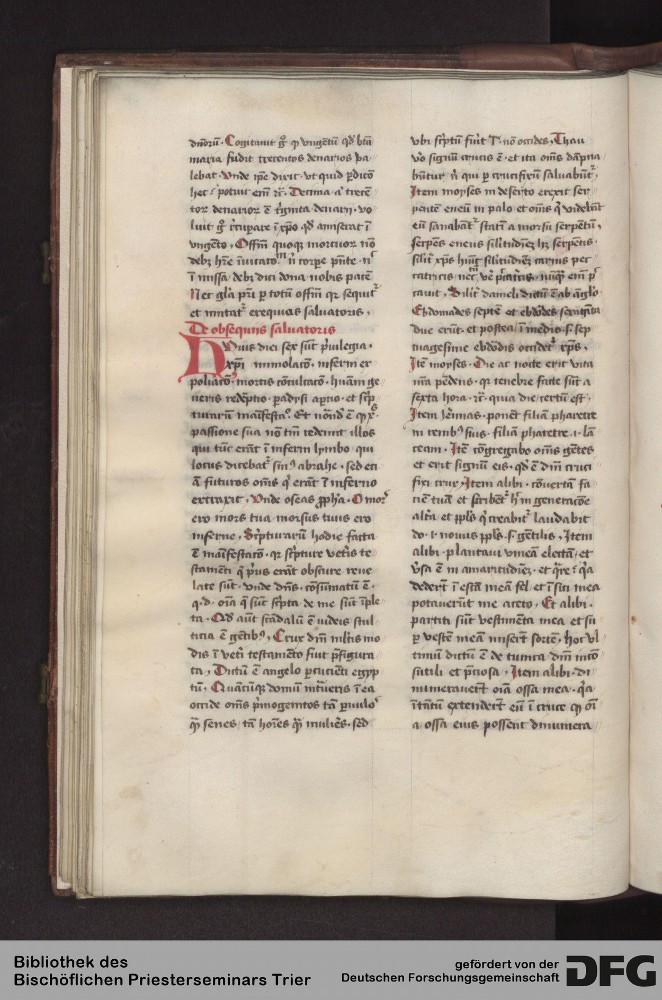 dn̄orū · Cogitauit g̊ ꝙ vngētū qd̄ bt̄a
maria fudit trecentos denarios va-
lebat · vnde ip̄e dixit · vt quid ꝑdicō
hec · potuit em̄ rͨ. Decima · a trecē
tor denarior ē t̓ginta denarij · vo
luit g̊ recuꝑare ī xp̄o qd̄ amiserat ī
vngēto · Offm̄ quoqꝫ mortuor nō
debꝫ hr̄e īuitatoꝫ n̄ corpe p̄nte · n̓
ī missa · debꝫ dici dona nobis pacē
Nec gla pr̄i ꝑ totū offm̄ qꝛ sequit᷑
et imitat᷑ exequias saluatoris ·
De obsequijs saluatoris
Huius diei sex sūt p̓uilegia ·
xp̄i immolatō · inferni ex
poliatō · mortis cōculcatō · hūani ge
neris redēptio · padysi aꝑtio · et sc̓p
turarū maīfestatō · Et nōnd̓ ē ꝙ xp̄s
passione sua nō tm̄ redemit illos
qui tūc erāt ī inferni lymbo · qui
locus dicebat᷑ sinꝰ abrahe · sed eti
ā futuros om̄s q̓ erāt ī inferno
extraxit · Vnde oseas ꝓpha · O mors
ero mors tua morsus tuus ero
inferne · Sc̓pturarū hodie facta
ē maīfestacō · qꝛ sc̓pture vet̓is te
stamēti q̄ p̓us erāt obscure reue
late sūt · vnde dn̄s · cōsumatū ē ·
q · d · oīa q̄ sūt sc̓pta de me sūt īple
ta · Qd̄ aūt scādalū ē iudeis stul
ticia ē gētibꝰ · Crux dn̄i ml̓tis mo
dis ī vet̓i testamēto fuit p̄figura
ta · Dictū ē angelo ꝑcucienti egyp
tū · Quācūqꝫ domū int̓ueris ī ea
occide om̄s p̓mogenitos tā ꝑuulos
qͣꝫ senes · tā hoīes qͣꝫ mulieēs · sed
vbi sc̓ptū fu̓it T · nō occides · Thau
v̊o signū crucis ē · et ita om̄s dāpna
būtur n̓ qui ꝑ crucifixū saluabūt᷑ ·
Item moyses in deserto erexit ser
pentē eneū in palo · et om̄s q̓ videbāt
eū sanabāt᷑ statī a morsu serpētū ·
serpēs eneus silitudinē hꝫ serpētis
Ebdomades septē et ebdōdes sexagīta
due erūt · et postea ī medio · s · sep
tuagesime ebdōdis occidet᷑ xp̄s ·
Itē moyses · Die ac nocte erit vita
nr̄a pēdens · qꝛ tenebre facte sūt a
sexta hora · rͨ · qua die tertiū est ·
Item Ieremias · ponēt filiā pharetre
in renibꝰ suis · filiā pharetre · i · lā
ceam · Itē cōgregabo om̄s gētes
et erit signū eis · qd̄ ē dn̄i cruci
fixi crux · Item alibi · cōuertā fa
ciē tuā et sc̓bet᷑ h̓ in generacōe
alt̓a et ppl̓s q̓ creabit᷑ laudabit
do · i · nouus ppl̓s · s · gentilis · Item
alibi · plantaui vineā electā · et
v̓sa ē in amaritudinē · et q̄re · qͥa
dederūt ī escā meā fel et ī siti mea
potauerūt me aceto · Et alibi ·
partiti sūt vestimēta mea et su
ꝑ vestē meā miserūt sortē · hoc vl
timū dictū ē de tunica dn̄i incō
sutili et p̄ciosa · Item alibi · di
numerauerūt oīa ossa mea · qͥa
ī tātū extenderūt eū ī cruce ꝙ oī
a ossa eius possent dinumera
Bibliothek des
Bischöflichen Priesterseminars Trier
gefördert von der
Deutschen Forschungsgemeinschaft
DFG